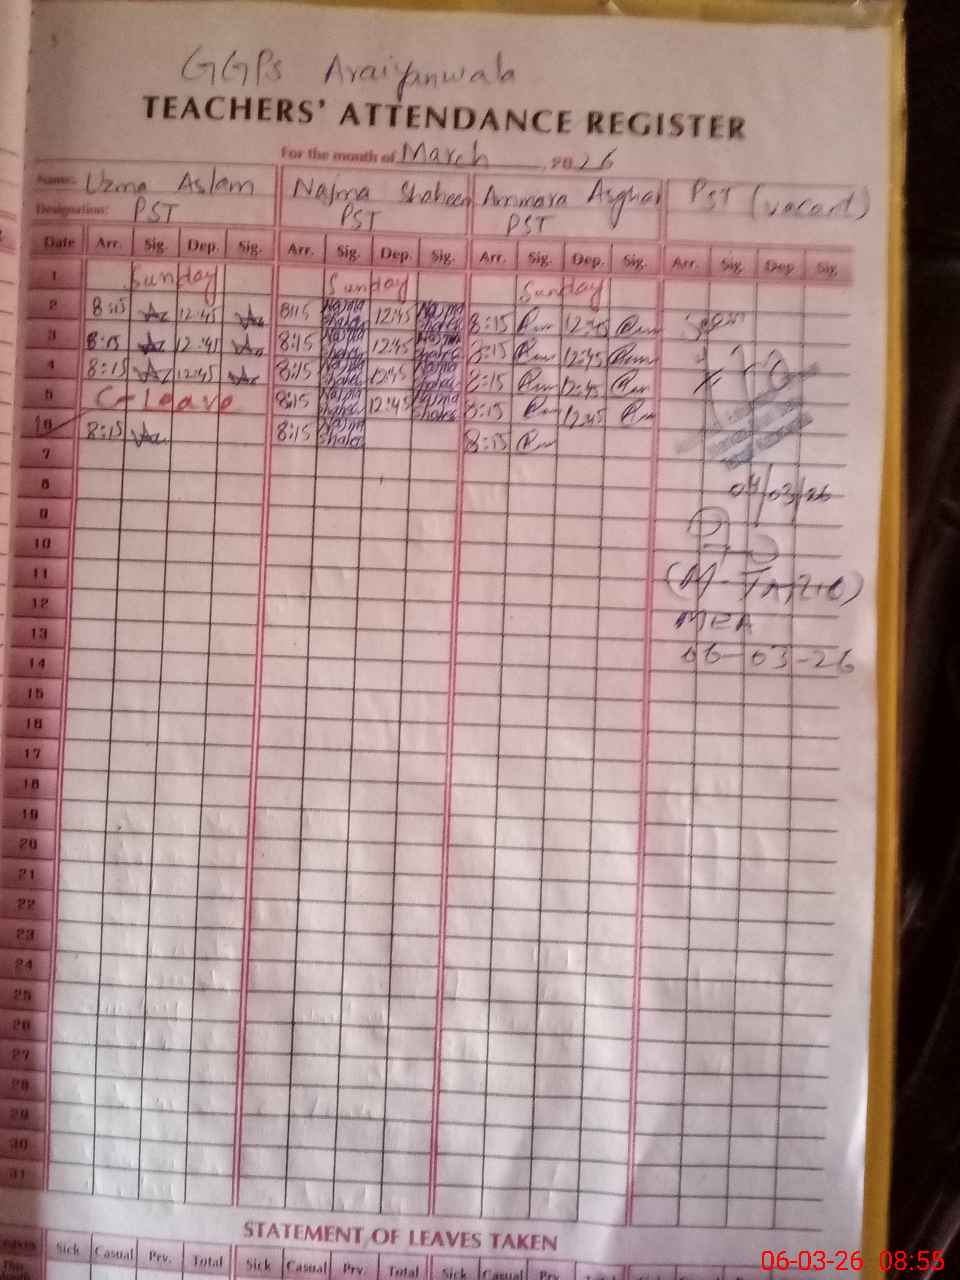 GGPS Araiyanwala
TEACHERS' ATTENDANCE REGISTER
For the month of March 2026
Name: Uzma Aslam Najma Shaheen Ammara Asghar PST (vacant)
Designation: PST PST PST
Date Arr. Sig. Dep. Sig. Arr. Sig. Dep. Sig. Arr. Sig. Dep. Sig. Arr. Sig. Dep Sig.
1 Sunday Sunday Sunday
2 8:15 12:45 8:15 Najma Shaheen 12:45 Najma Shaheen 8:15 12:45
3 8:15 12:45 8:15 Najma Shaheen 12:45 Najma Shaheen 8:15 12:45
4 8:15 12:45 8:15 Najma Shaheen 12:45 Najma Shaheen 8:15 12:45
5 C-Leave 8:15 Najma Shaheen 12:45 Najma Shaheen 8:15 12:45
6 8:15 8:15 Najma Shaheen 8:15
7
8 04/03/26
9
10
11
12 MEA
13
14 06-03-26
15
16
17
18
19
20
21
22
23
24
25
26
27
28
29
30
31
STATEMENT OF LEAVES TAKEN
Sick Casual Prv. Total Sick Casual Prv. Total Sick Casual Prv
06-03-26 08:55